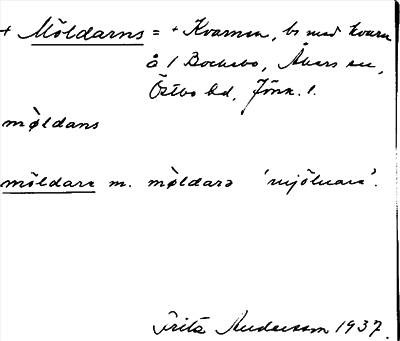 + Möldarns = + Kvarnen, bs med kvarn
å 1 Bockebo, Åkers sn,
Östbo hd, Jönk. l.
mø̀ldans
möldare m. mø̀ldarə 'mjölnare'.
Frits Andersson 1937.